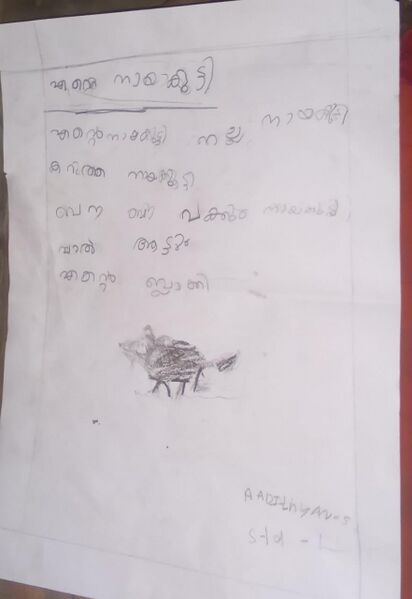 എന്റെ നായക്കുട്ടി
എന്റെ നായക്കുട്ടി നല്ല നായക്കുട്ടി
കറുത്ത നായക്കുട്ടി
ബൗ ബൗ വക്കും നായക്കുട്ടി
വാൽ ആട്ടും
എന്റെ ബ്ലാക്കി
AADITHYAN-S
Std -